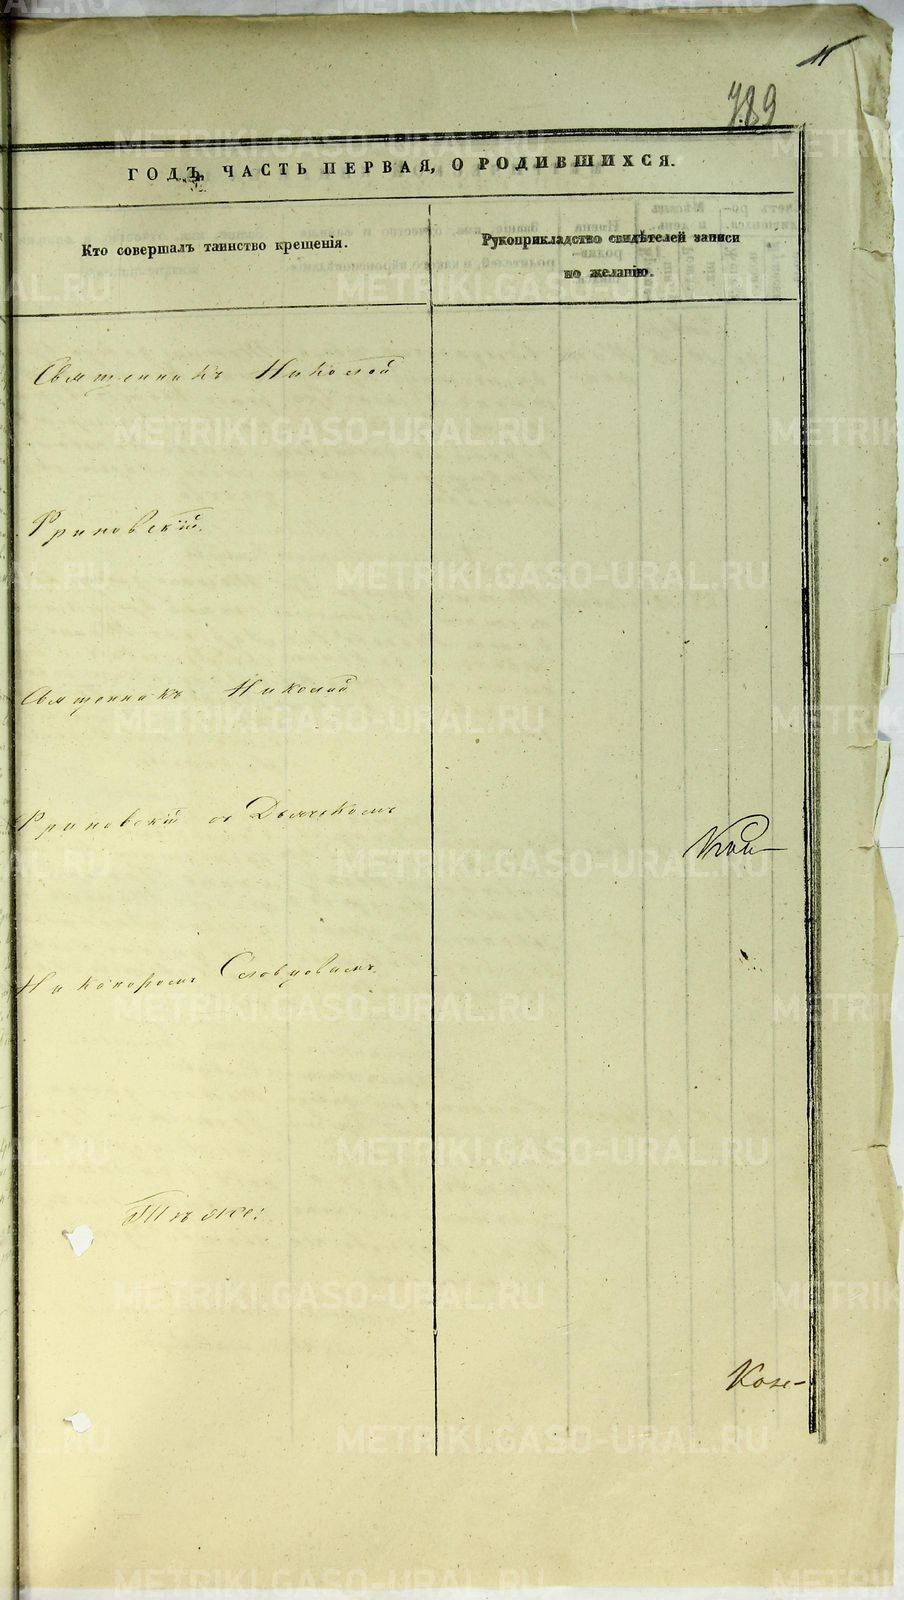 11
789
ГОДЪ, ЧАСТЬ ПЕРВАЯ, О РОДИВШИХСЯ.
Кто совершалъ таинство крещенія.
Рукоприкладство свидѣтелей записи
по желанію.
Священникъ Николай
Священникъ Николай
съ Дьячкомъ
Никаноромъ Словцовымъ.
Тѣ же:
METRIKI.GASO-URAL.RU